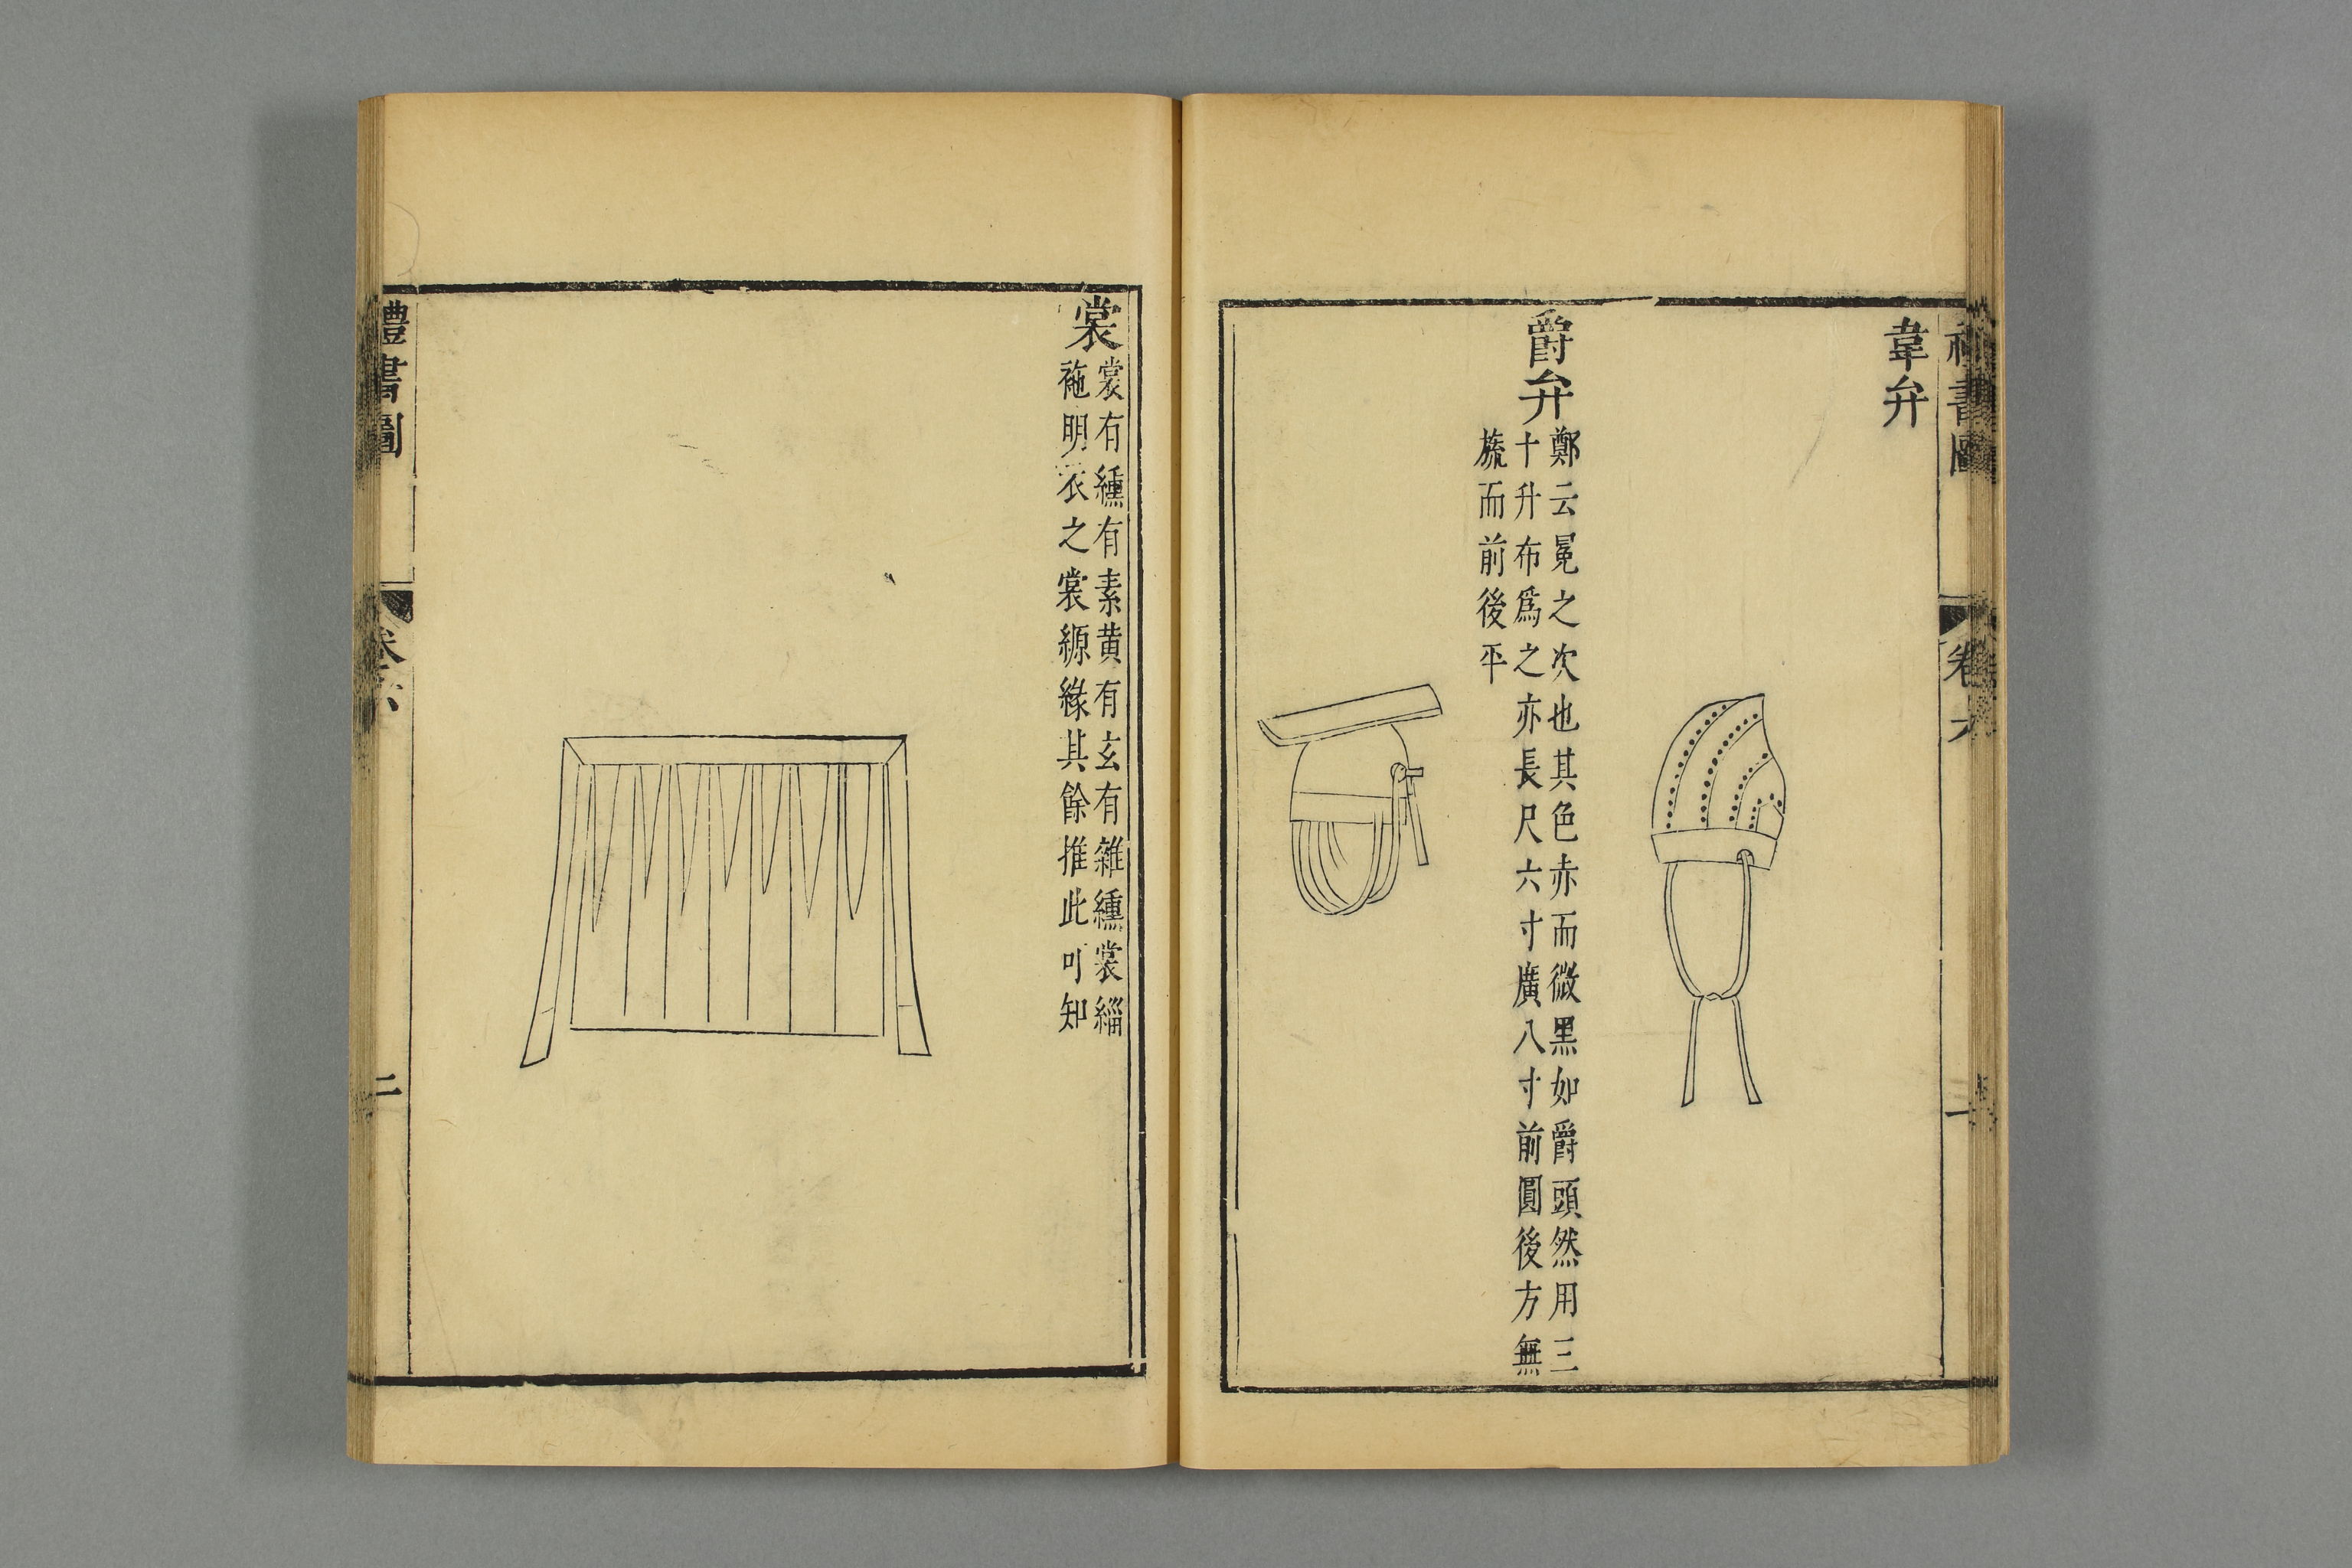 禮書圖 卷六 一
韋弁
爵弁
鄭云冕之次也其色赤而微黑如爵頭然用三
十升布爲之亦長尺六寸廣八寸前圓後方無
旒而前後平
裳
裳有纁有素黃有玄有雜纁裳緇
袘明衣之裳縓緣其餘推此可知
禮書圖 卷六 二